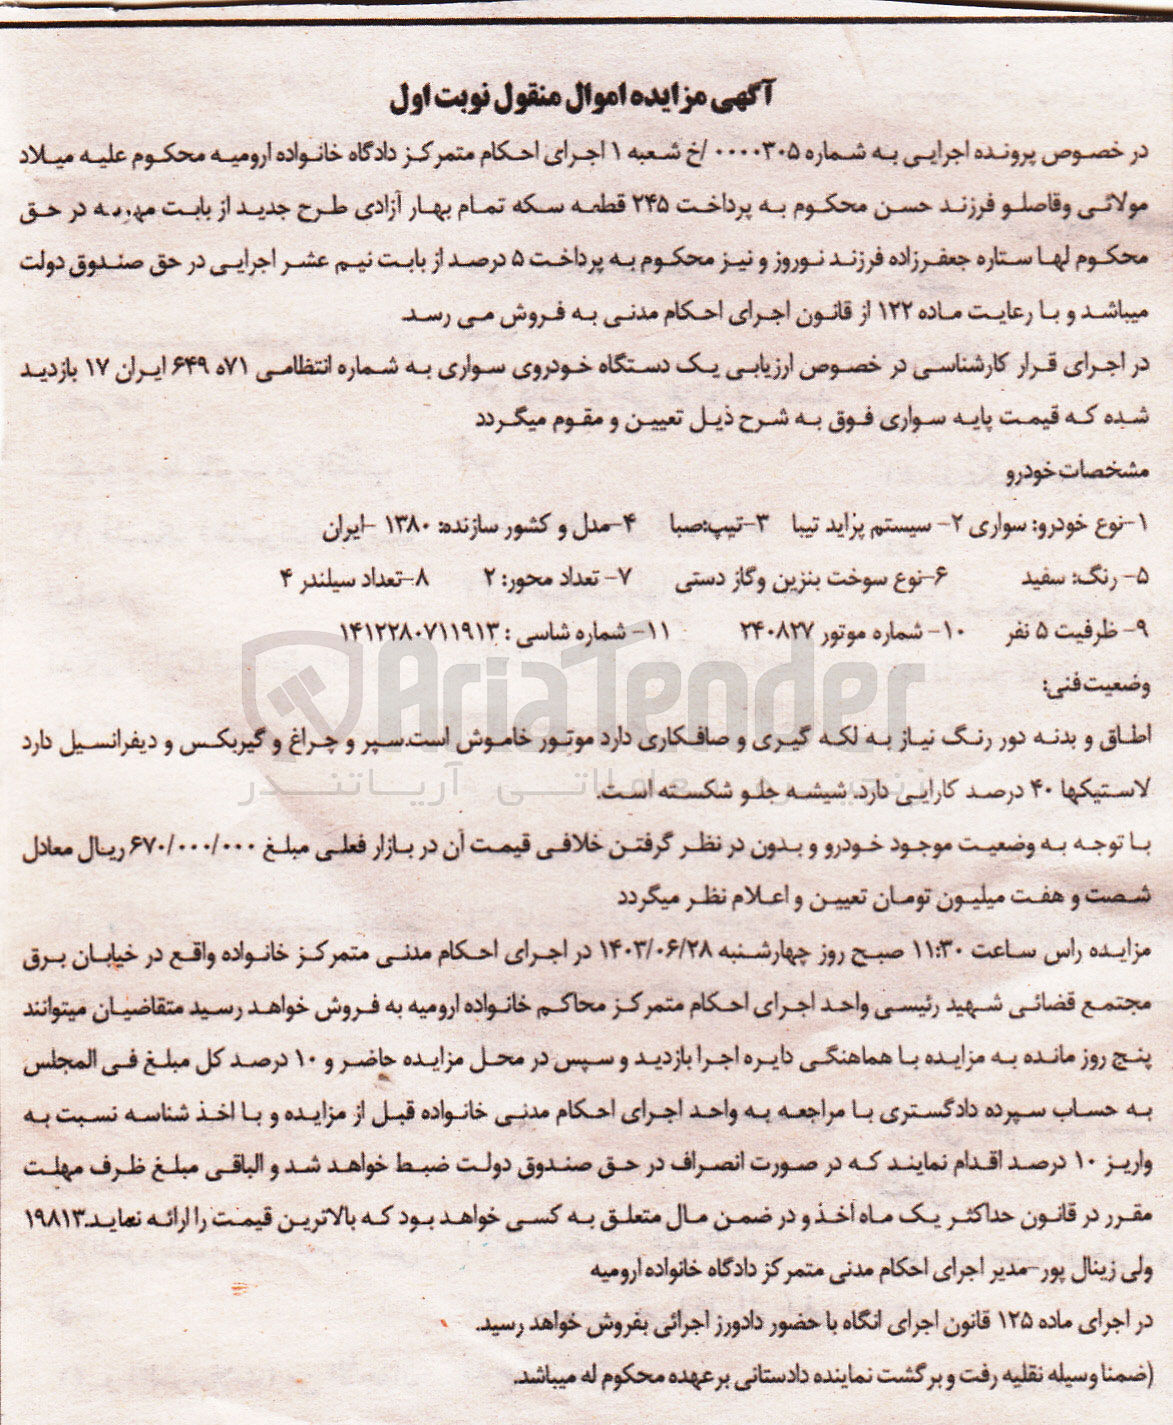 آگهی مزایده اموال منقول نوبت اول
در خصوص پرونده اجرایی به شماره ۰۰۰۰۳۰۵ /خ شعبه ۱ اجرای احکام متمرکز دادگاه خانواده ارومیه محکوم علیه میلاد
مولائی وقاصلو فرزند حسن محکوم به پرداخت ۲۴۵ قطعه سکه تمام بهار آزادی طرح جدید از بابت مهریه در حق
محکوم لها ستاره جعفرزاده فرزند نوروز و نیز محکوم به پرداخت ۵ درصد از بابت نیم عشر اجرایی در حق صندوق دولت
میباشد و با رعایت ماده ۱۲۲ از قانون اجرای احکام مدنی به فروش می رسد.
در اجرای قرار کارشناسی در خصوص ارزیابی یک دستگاه خودروی سواری به شماره انتظامی ۷۱ه ۶۴۹ ایران ۱۷ بازدید
شده که قیمت پایه سواری فوق به شرح ذیل تعیین و مقوم میگردد
مشخصات خودرو
۱-نوع خودرو: سواری ۲- سیستم پراید تیبا ۳-تیپ:صبا ۴-مدل و کشور سازنده: ۱۳۸۰ -ایران
۵- رنگ: سفید ۶-نوع سوخت بنزین وگاز دستی ۷- تعداد محور: ۲ ۸-تعداد سیلندر ۴
۹- ظرفیت ۵ نفر ۱۰- شماره موتور ۲۴۰۸۲۷ ۱۱- شماره شاسی : ۱۴۱۲۲۸۰۷۱۱۹۱۳
AriaTender
وضعیت فنی:
اطاق و بدنه دور رنگ نیاز به لکه گیری و صافکاری دارد موتور خاموش است.سپر و چراغ و گیربکس و دیفرانسیل دارد
لاستیکها ۴۰ درصد کارایی دارد. شیشه جلو شکسته است.
با توجه به وضعیت موجود خودرو و بدون در نظر گرفتن خلافی قیمت آن در بازار فعلی مبلغ ۶۷۰/۰۰۰/۰۰۰ ریال معادل
شصت و هفت میلیون تومان تعیین و اعلام نظر میگردد
مزایده راس ساعت ۱۱:۳۰ صبح روز چهارشنبه ۱۴۰۳/۰۶/۲۸ در اجرای احکام مدنی متمرکز خانواده واقع در خیابان برق
مجتمع قضائی شهید رئیسی واحد اجرای احکام متمرکز محاکم خانواده ارومیه به فروش خواهد رسید متقاضیان میتوانند
پنج روز مانده به مزایده با هماهنگی دایره اجرا بازدید و سپس در محل مزایده حاضر و ۱۰ درصد کل مبلغ فی المجلس
به حساب سپرده دادگستری با مراجعه به واحد اجرای احکام مدنی خانواده قبل از مزایده و با اخذ شناسه نسبت به
واریز ۱۰ درصد اقدام نمایند که در صورت انصراف در حق صندوق دولت ضبط خواهد شد و الباقی مبلغ ظرف مهلت
مقرر در قانون حداکثر یک ماه اخذ و در ضمن مال متعلق به کسی خواهد بود که بالاترین قیمت را ارائه نماید.۱۹۸۱۳
ولی زینال پور-مدیر اجرای احکام مدنی متمرکز دادگاه خانواده ارومیه
در اجرای ماده ۱۲۵ قانون اجرای انگاه با حضور دادورز اجرائی بفروش خواهد رسید.
(ضمنا وسیله نقلیه رفت و برگشت نماینده دادستانی بر عهده محکوم له میباشد.